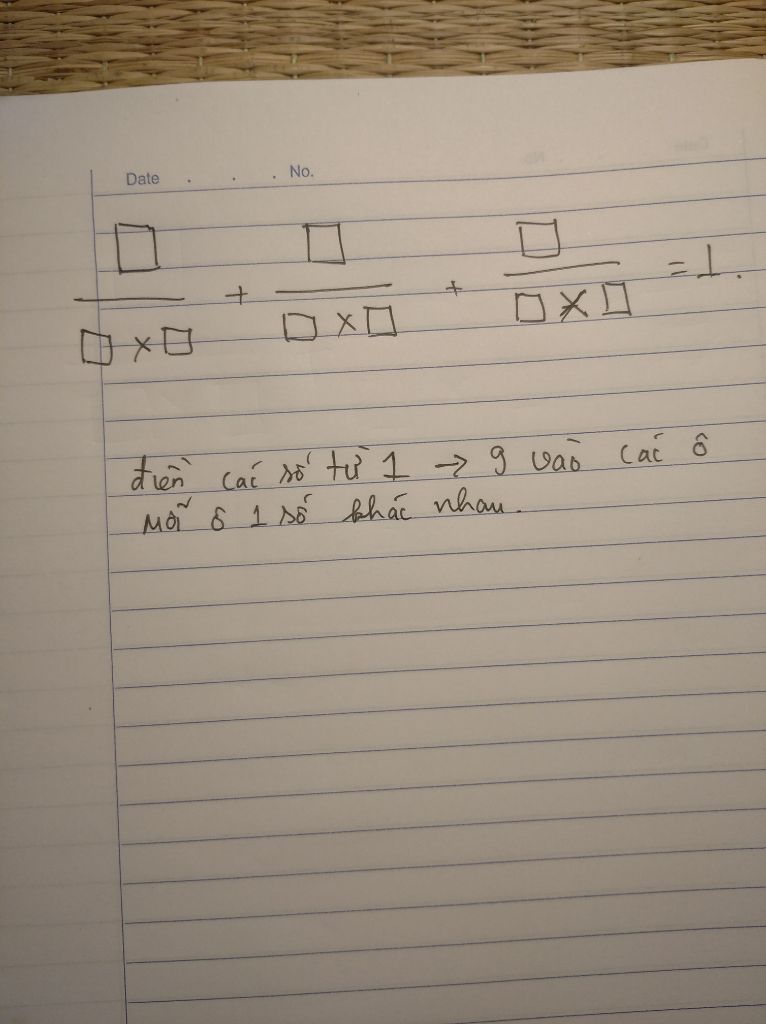 Date . . . No.
□/(□ x □) + □/(□ x □) + □/(□ x □) = 1.
điền các số từ 1 → 9 vào các ô
mỗi ô 1 số khác nhau.